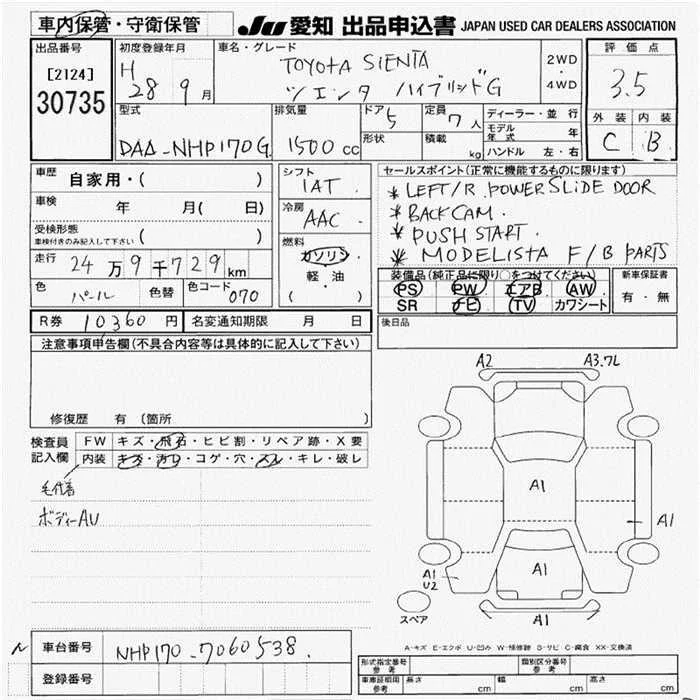 車内保管・守衛保管 JU 愛知 出品申込書 JAPAN USED CAR DEALERS ASSOCIATION
出品番号 初度登録年月 車名・グレード 評価点
[2124] H 28 9月 TOYOTA SIENTA 2WD
・
30735 シエンタ ハイブリッドG 4WD 3.5
型式 排気量 ドア 定員 ディーラー・並行 外装 内装
5 7人 モデル年式 年
DAA-NHP170G 1500cc 形状 積載 kg ハンドル 左・右 C B
車歴 自家用・( ) シフト セールスポイント(正常に機能するものに限ります)
IAT * LEFT/R POWER SLIDE DOOR
車検 年 月( 日) 冷房 * BACK CAM.
AAC * PUSH START.
受検形態 ( ) * MODELISTA F/B PARTS
車検付きのみ記入して下さい
燃料
走行 24万9千729km ガソリン 装備品(純正品に限り○をつけてください) 新車保証書
軽・油 PS PW エアB AW 有・無
色 パール 色替 色コード 070 ( ・ ) SR ナビ TV カワシート
R券 10360円 名変通知期限 月 日 後日品
注意事項申告欄(不具合内容等は具体的に記入して下さい)
修復歴 有 (箇所
検査員 FW キズ・飛石・ヒビ割・リペア跡・X要
記入欄 内装 キズ・汚れ・コゲ・穴・スレ・キレ・破レ
毛付着
ボディーAU
A2 A3.7L
A1
A1
A1
A1
U2
A1
スペア
A-キズ E-エクボ U-凹み W-補修跡 S-サビ C-腐食 XX-交換済
車台番号 NHP170-7060538.
登録番号
形式指定番号 参考 類別区分番号 参考
車庫証明用 参考 長さ cm 幅 cm 高さ cm